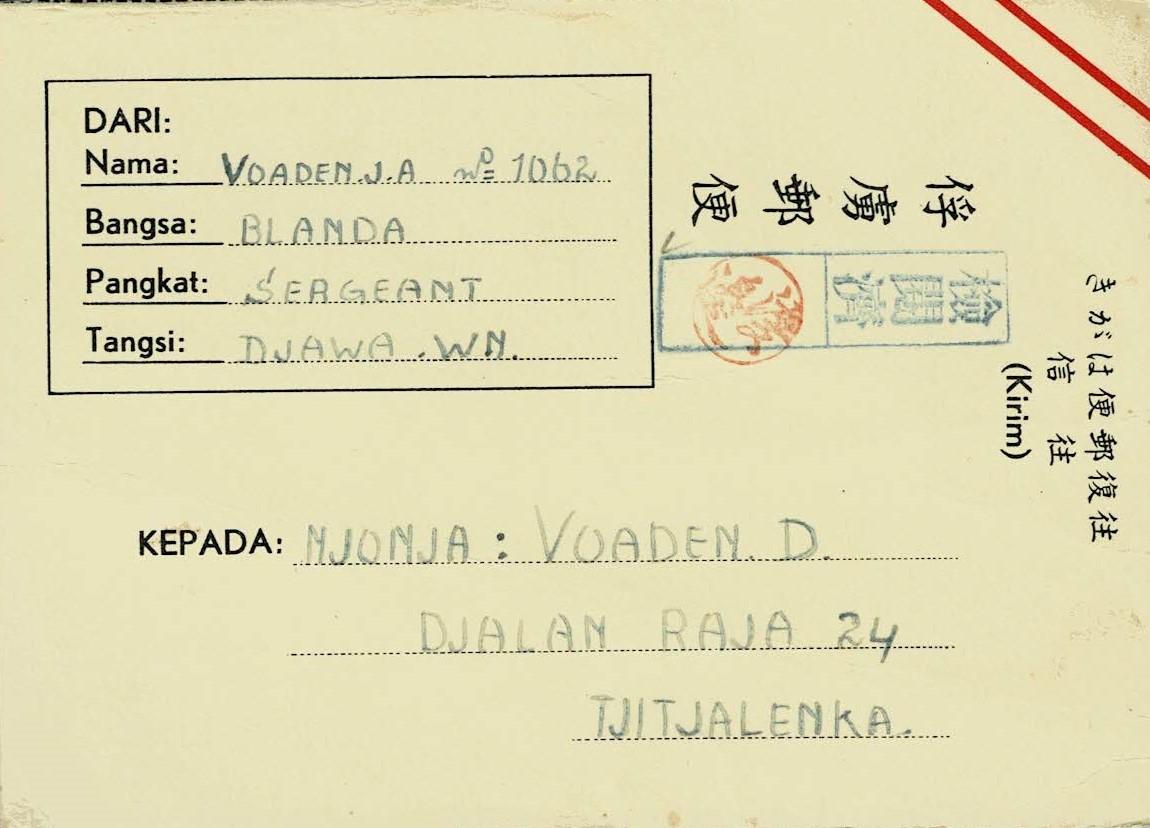 DARI:
Nama: VOADEN.J.A No 1062
Bangsa: BLANDA
Pangkat: SERGEANT
Tangsi: DJAWA.WN.
俘虜郵便
検閲濟
往復郵便はがき
往信
(Kirim)
KEPADA: NJONJA: VOADEN. D.
DJALAN RAJA 24
TJITJALENKA.